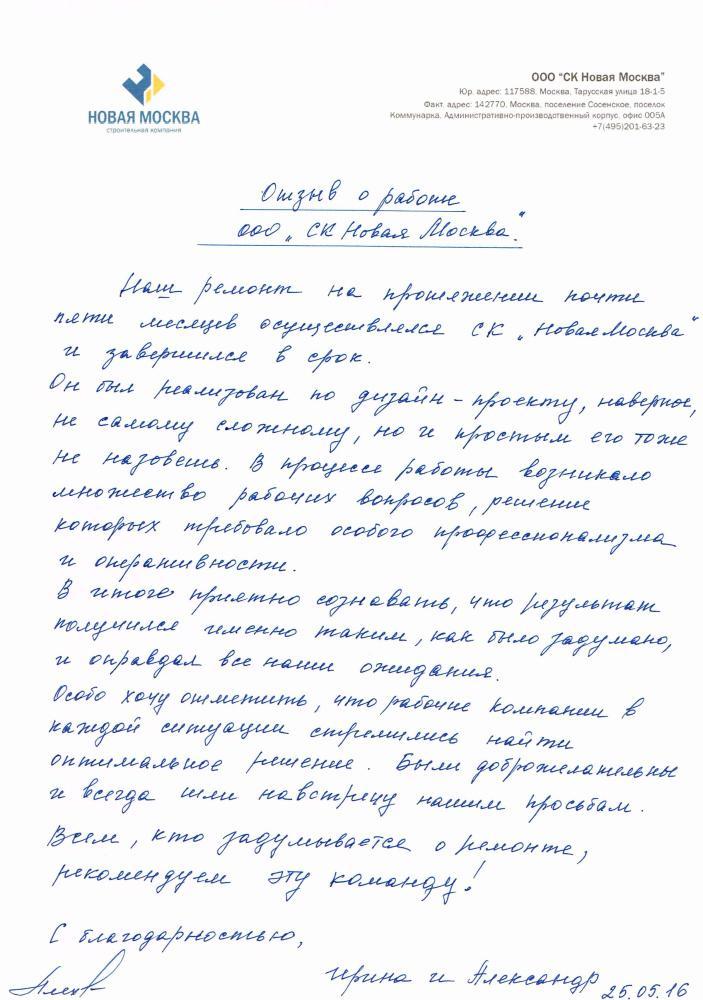 НОВАЯ МОСКВА
строительная компания
ООО "СК Новая Москва"
Юр. адрес: 117588, Москва, Тарусская улица 18-1-5
Факт. адрес: 142770, Москва, поселение Сосенское, поселок
Коммунарка, Административно-производственный корпус, офис 005А
+7(495)201-63-23
Отзыв о работе
ООО „СК Новая Москва".
Наш ремонт на протяжении почти
пяти месяцев осуществлялся СК „Новая Москва"
и завершился в срок.
Он был реализован по дизайн-проекту, наверное,
не самому сложному, но и простым его тоже
не назовешь. В процессе работы возникало
множество рабочих вопросов, решение
которых требовало особого профессионализма
и оперативности.
В итоге приятно сознавать, что результат
получился именно таким, как было задумано,
и оправдал все наши ожидания.
Особо хочу отметить, что рабочие компании в
каждой ситуации стремились найти
оптимальное решение. Были доброжелательны
и всегда шли навстречу нашим просьбам.
Всем, кто задумывается о ремонте,
рекомендуем эту команду!
С благодарностью,
Ирина и Александр 25.05.16